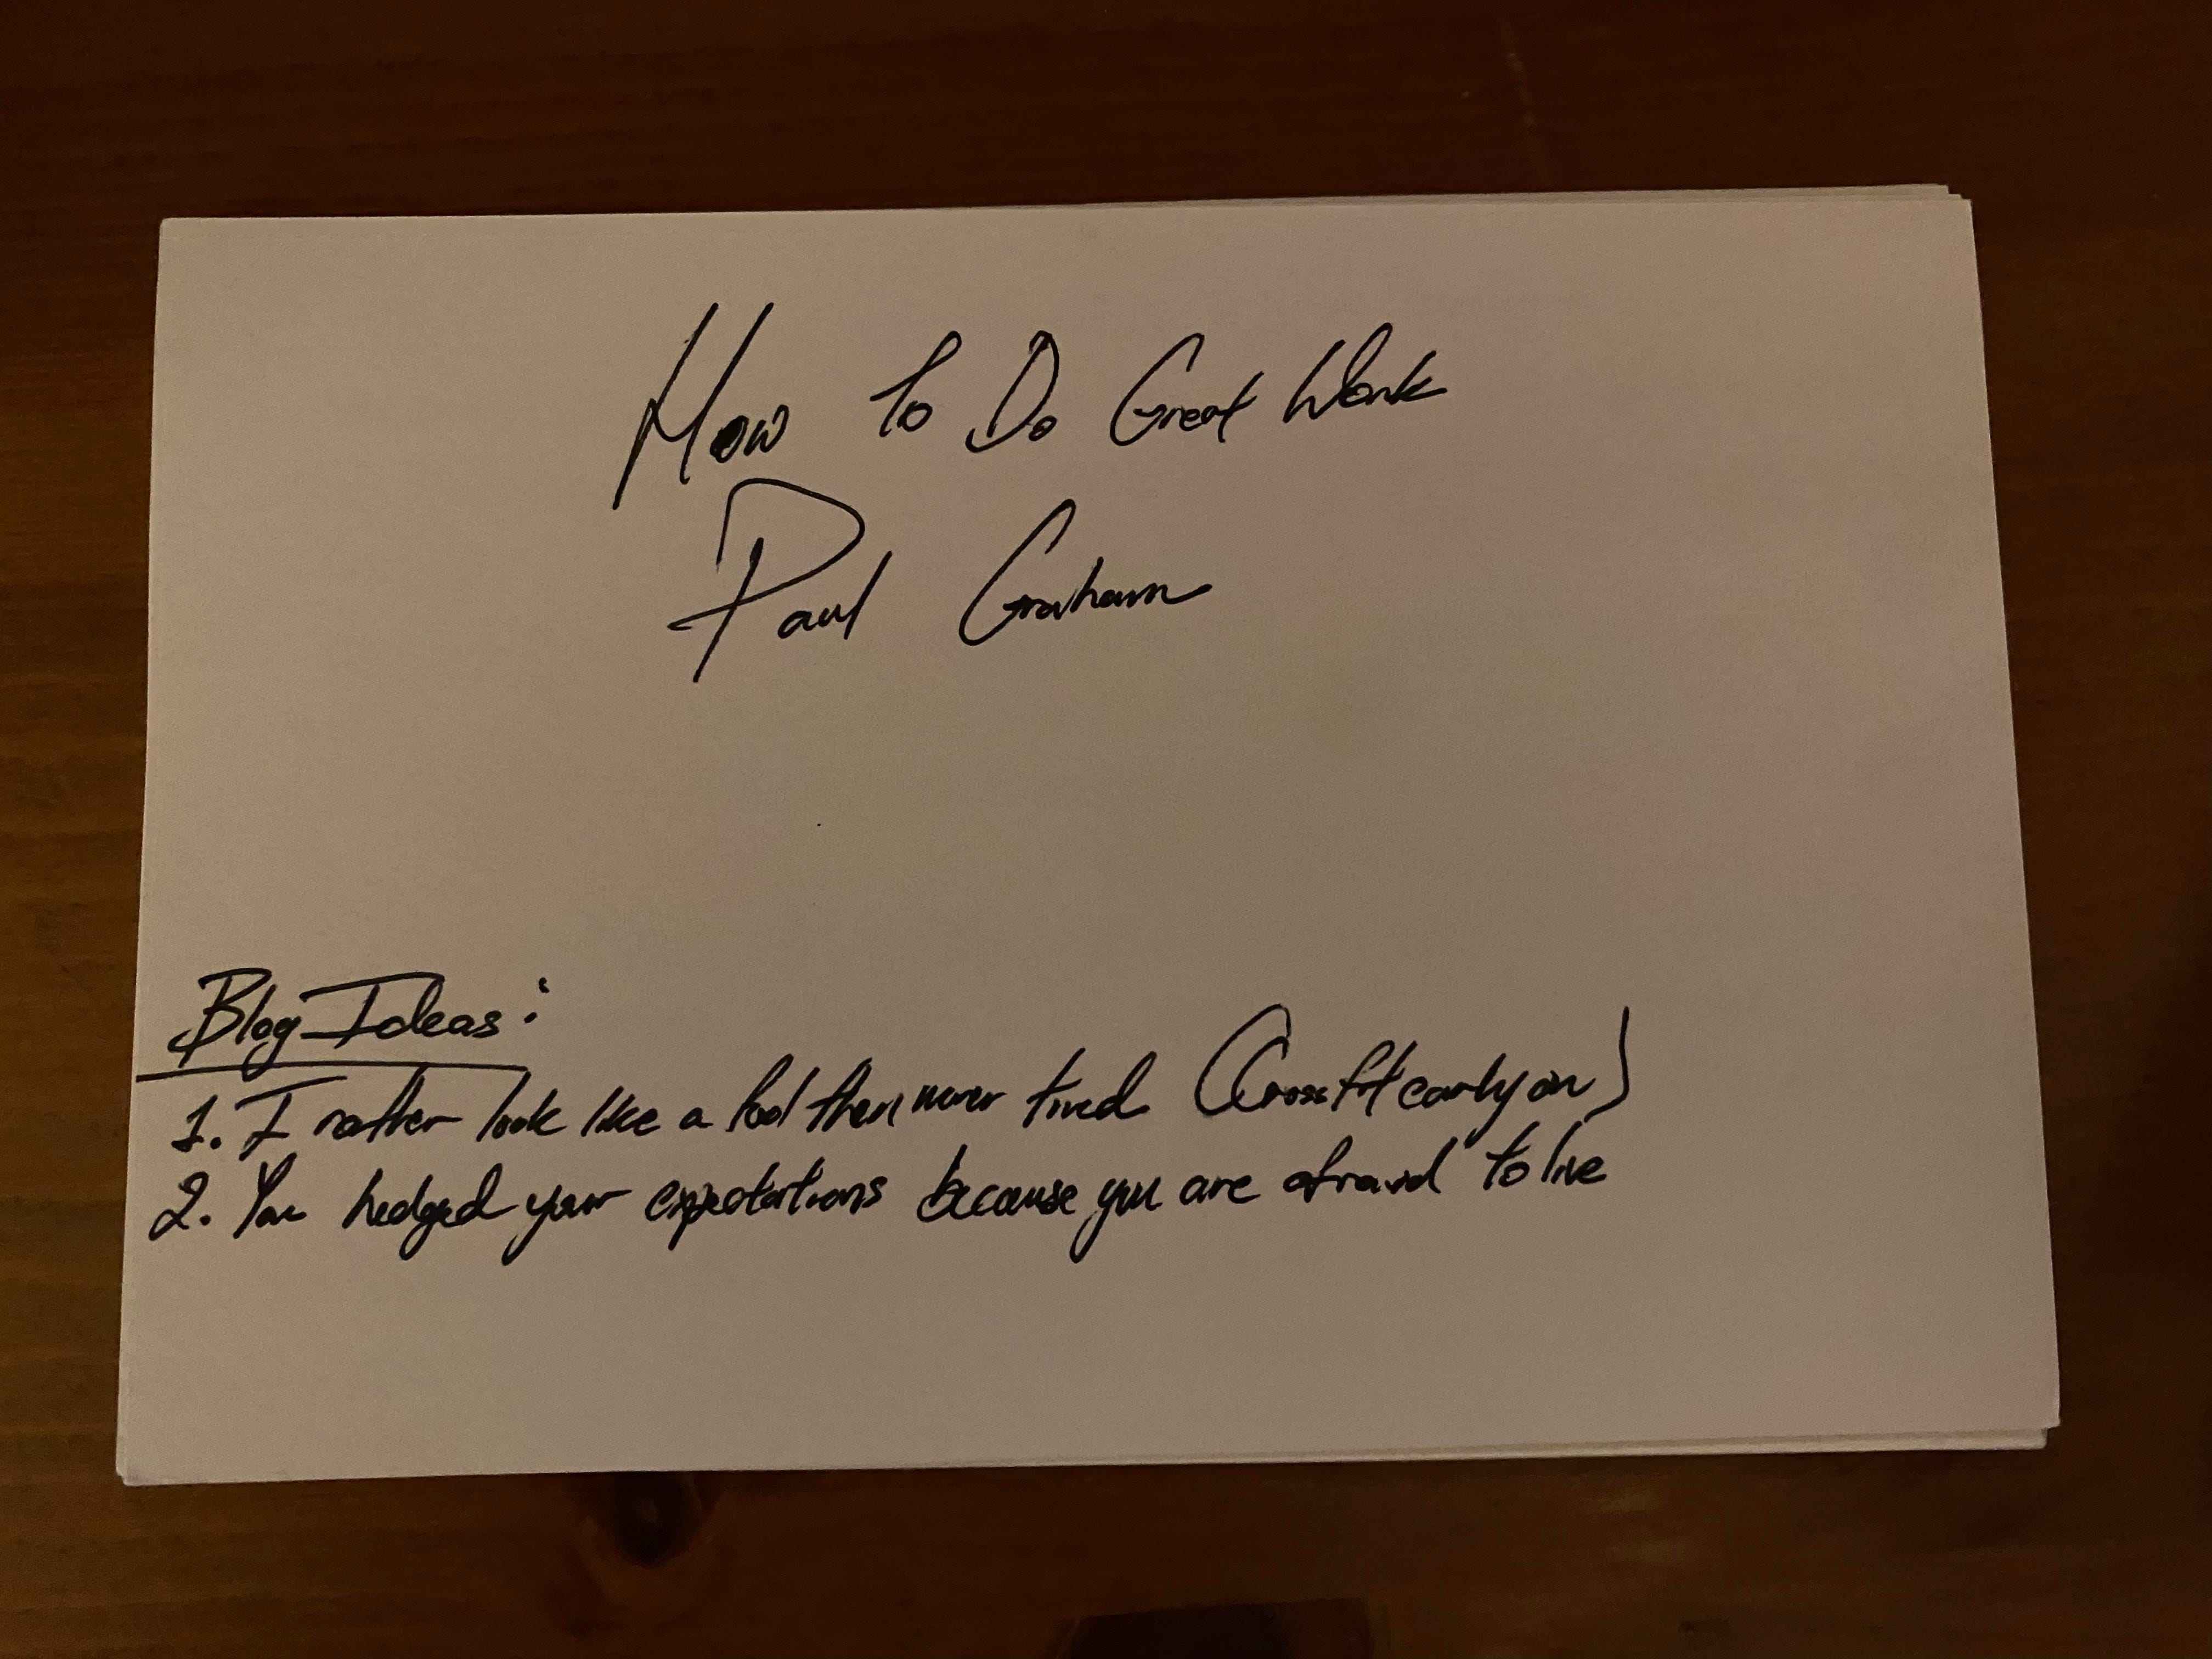 How To Do Great Work
Paul Graham
Blog Ideas:
1. I rather look like a fool then never tired (Crossfit early on)
2. You hedged your expectations because you are afraid to live